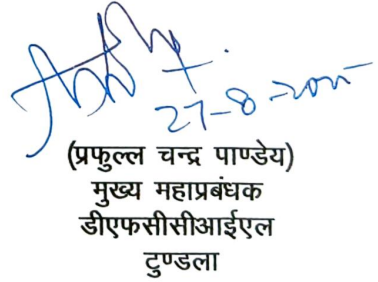 27-8-2025
(प्रफुल्ल चन्द्र पाण्डेय)
मुख्य महाप्रबंधक
डीएफसीसीआईएल
टुण्डला